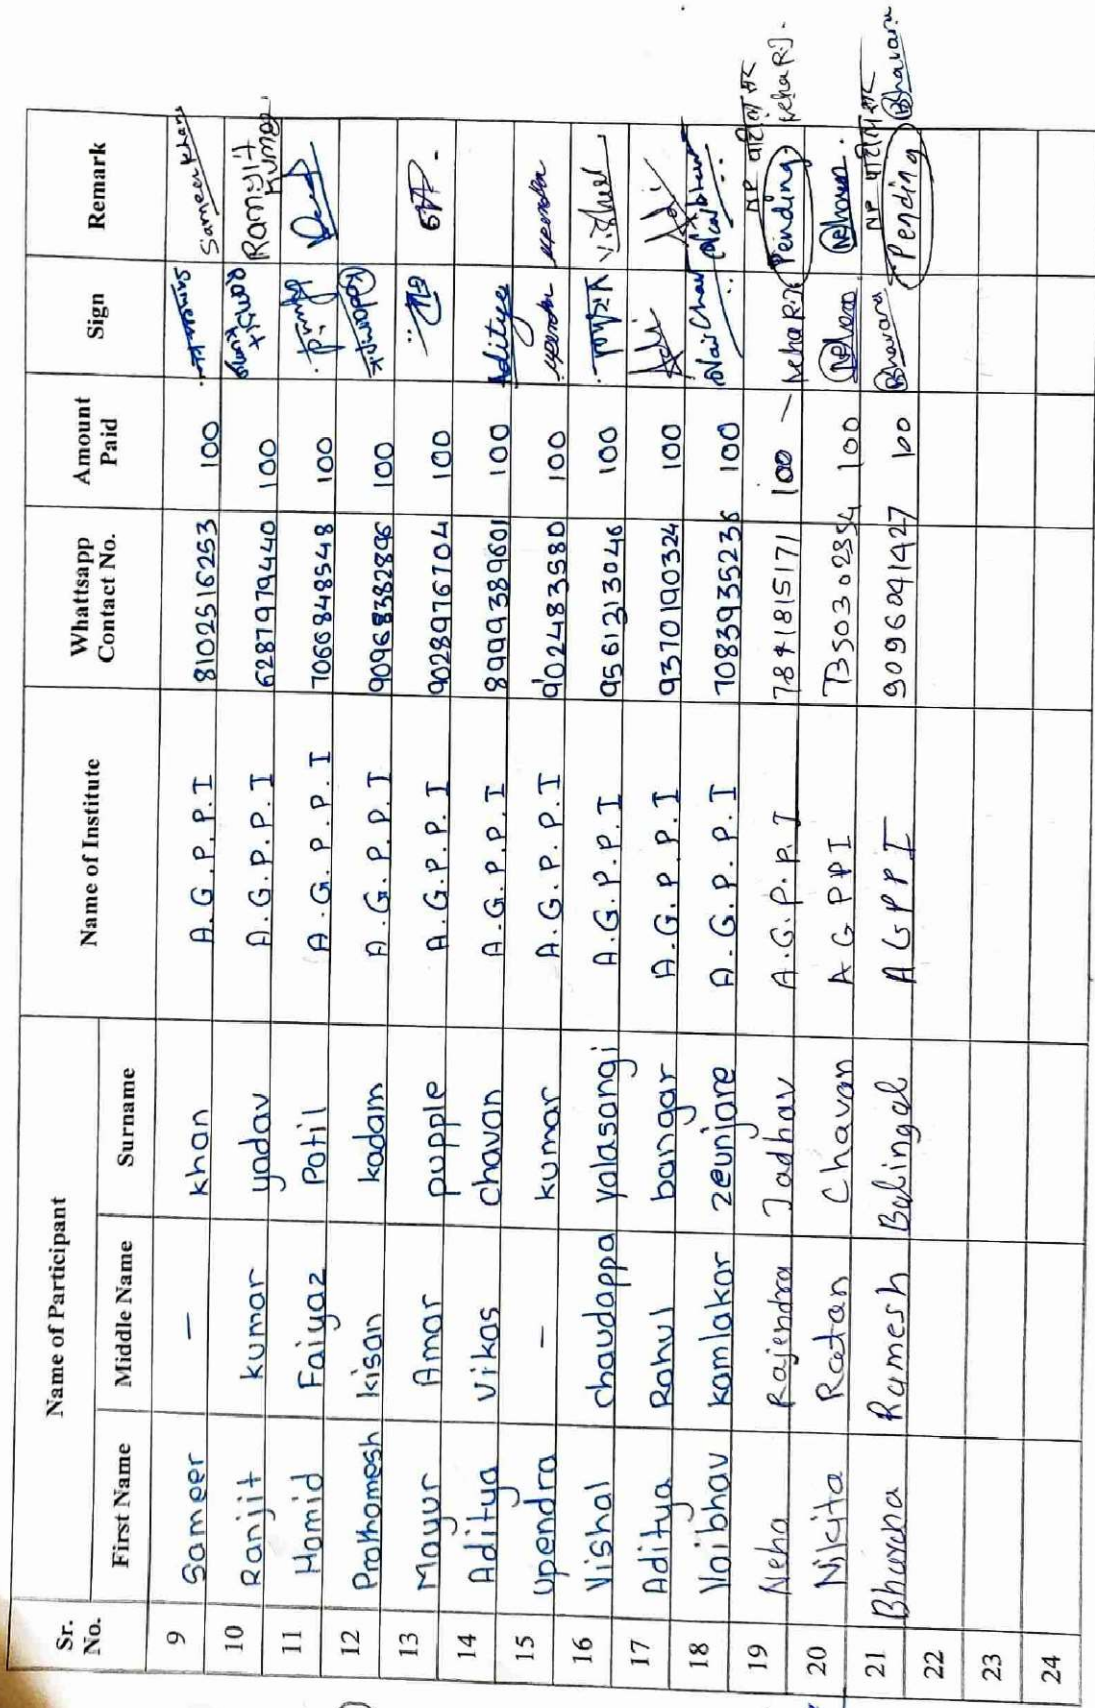 Sr. No. Name of Participant Name of Institute Whattsapp Contact No. Amount Paid Sign Remark
First Name Middle Name Surname
9 Sameer — khan A.G.P.P.I 8102516253 100 Sameer Khan
10 Ranjit kumar yadav A.G.P.P.I 6287979440 100 Ranjit Kumar Ranjit Kumar
11 Hamid Faiyaz Patil A.G.P.P.I 7066848548 100
12 Prathamesh kisan kadam A.G.P.P.I 9096838289６ 100
13 Mayur Amar pupple A.G.P.P.I 9028976704 100
14 Aditya Vikas chavan A.G.P.P.I 8999389601 100 Aditya
15 Upendra — kumar A.G.P.P.I 902483580 100 upendra upendra
16 Vishal chaudappa yalasangi A.G.P.P.I 9561313046 100 Vishal
17 Aditya Rahul bangar A.G.P.P.I 9370190324 100 Adi Adi
18 Vaibhav kamlakar zeunjare A.G.P.P.I 7083935236 100
19 Neha Rajendra Jadhav A.G.P.P.I 7841815171 100 — Neha R.J. Pending NP पाटील सर Neha R.J.
20 Nikita Ratan Chavan AGPPI 7350302354 100
21 Bhavana Ramesh Balingal AGPPI 9096041427 100 Bhavana Pending NP पाटील सर Bhavana
22
23
24